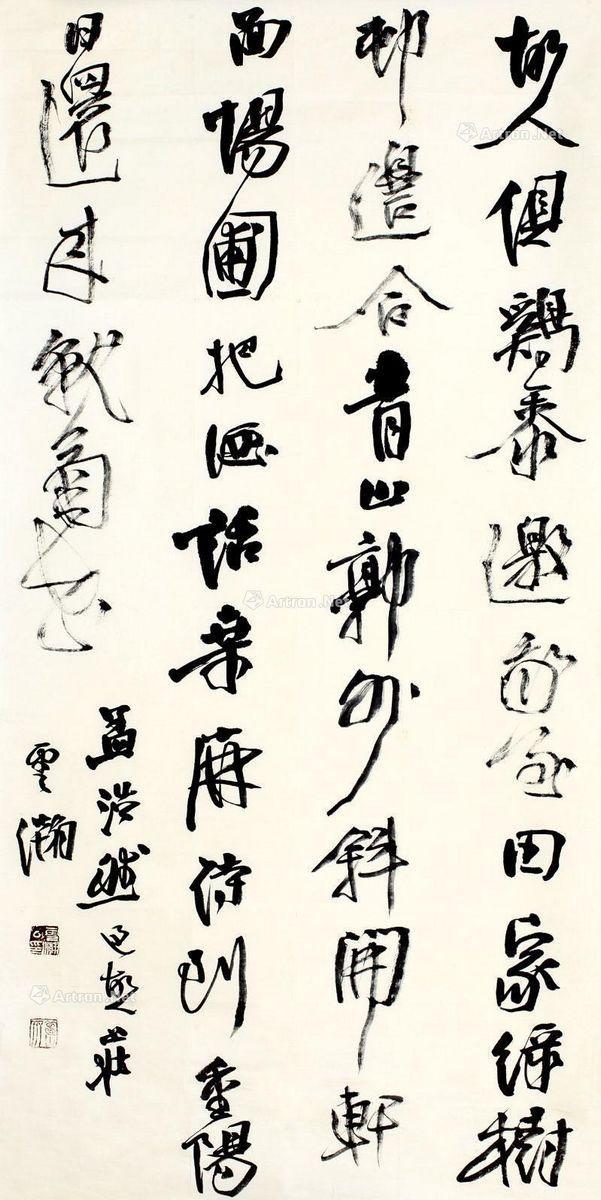 故人俱鷄黍邀我至田家緑樹
邨邊合青山郭外斜開軒
面場圃把酒話桑麻待到重陽
日還来就菊花
孟浩然過故人莊
雲瀚
Artron.Net
Artron.Net
Artron.Net